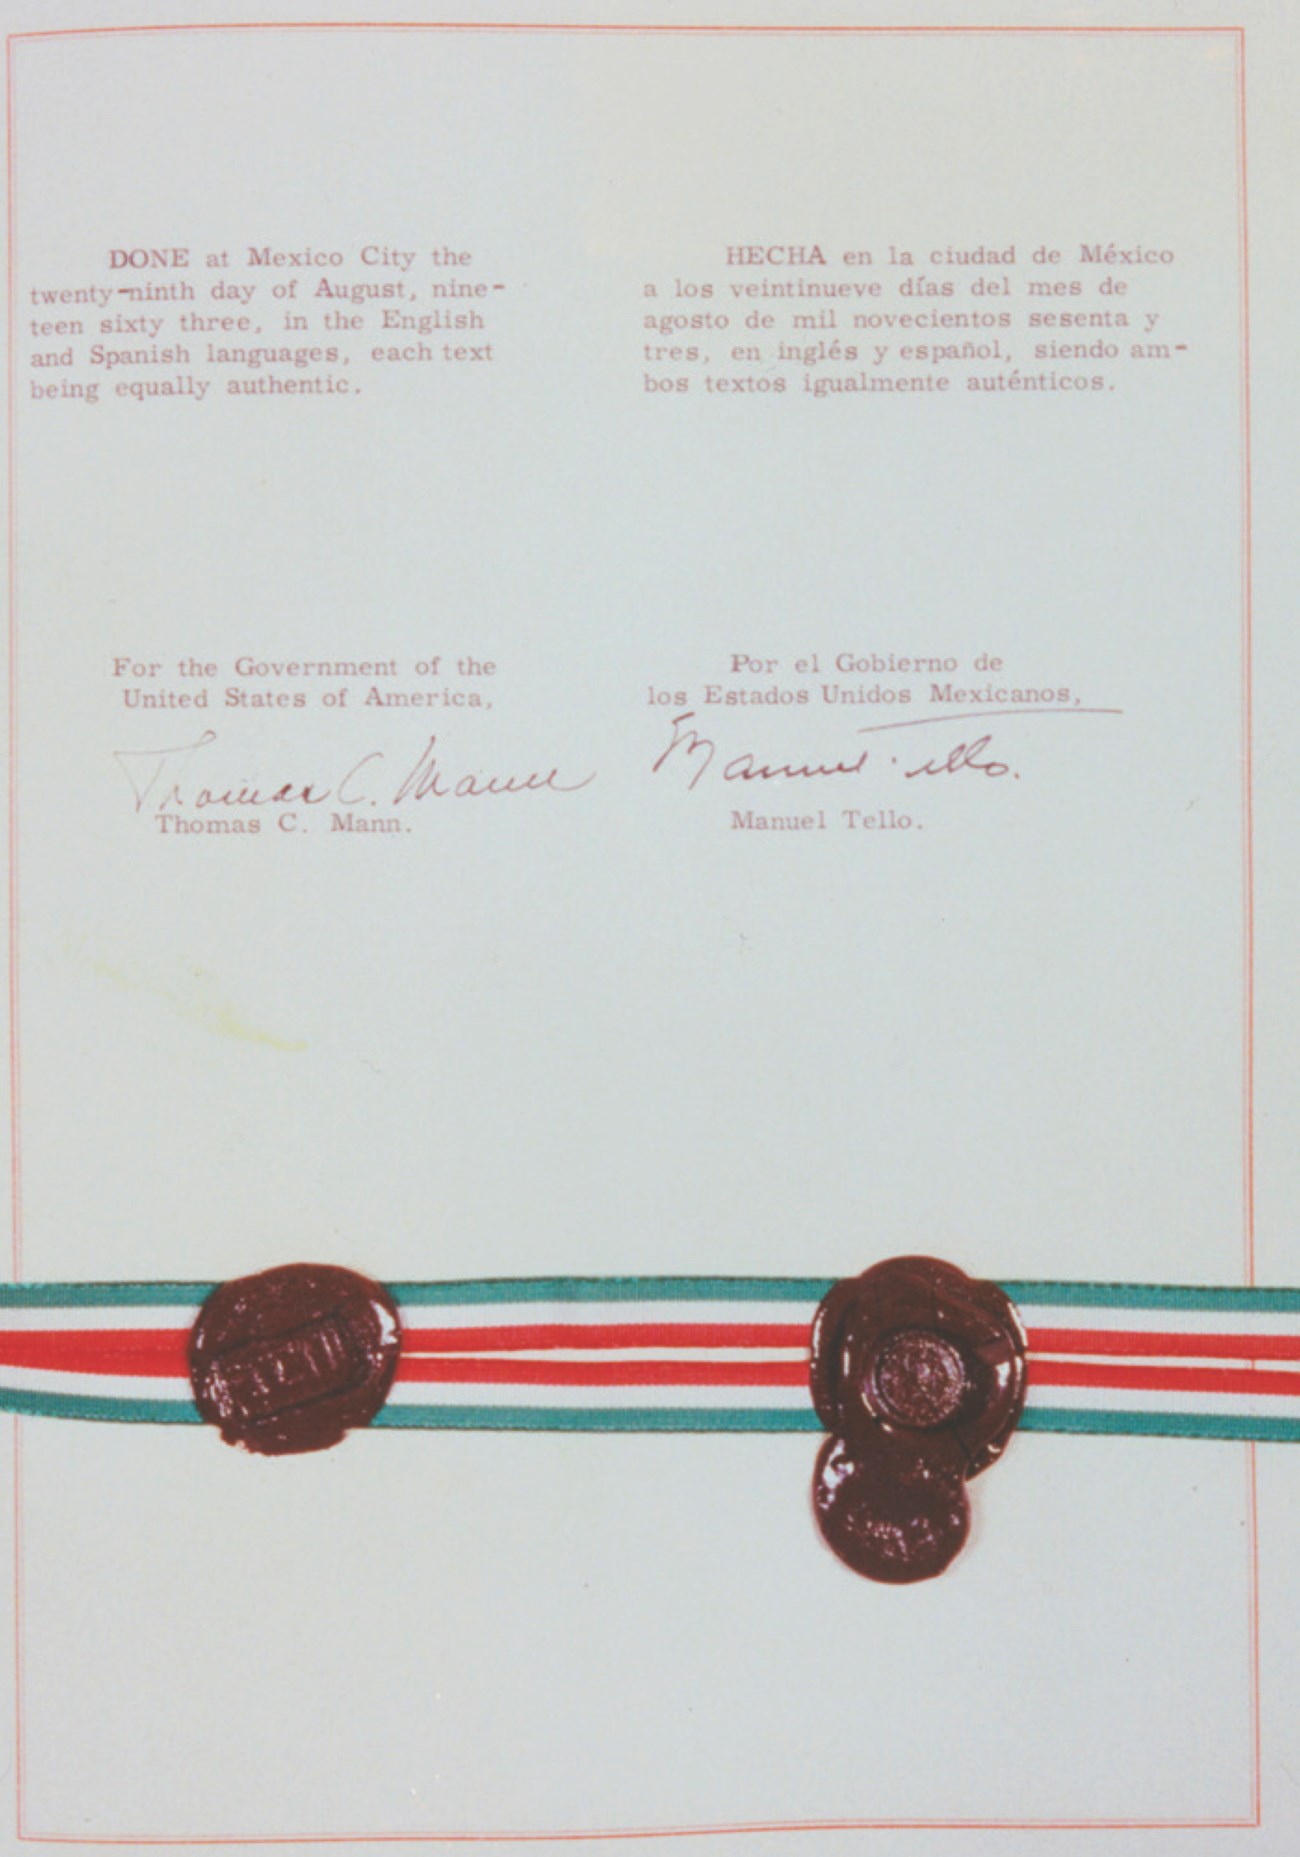 DONE at Mexico City the
twenty-ninth day of August, nine-
teen sixty three, in the English
and Spanish languages, each text
being equally authentic.
HECHA en la ciudad de México
a los veintinueve días del mes de
agosto de mil novecientos sesenta y
tres, en inglés y español, siendo am-
bos textos igualmente auténticos.
For the Government of the
United States of America,
Thomas C. Mann
Thomas C. Mann.
Por el Gobierno de
los Estados Unidos Mexicanos,
Manuel Tello.
Manuel Tello.